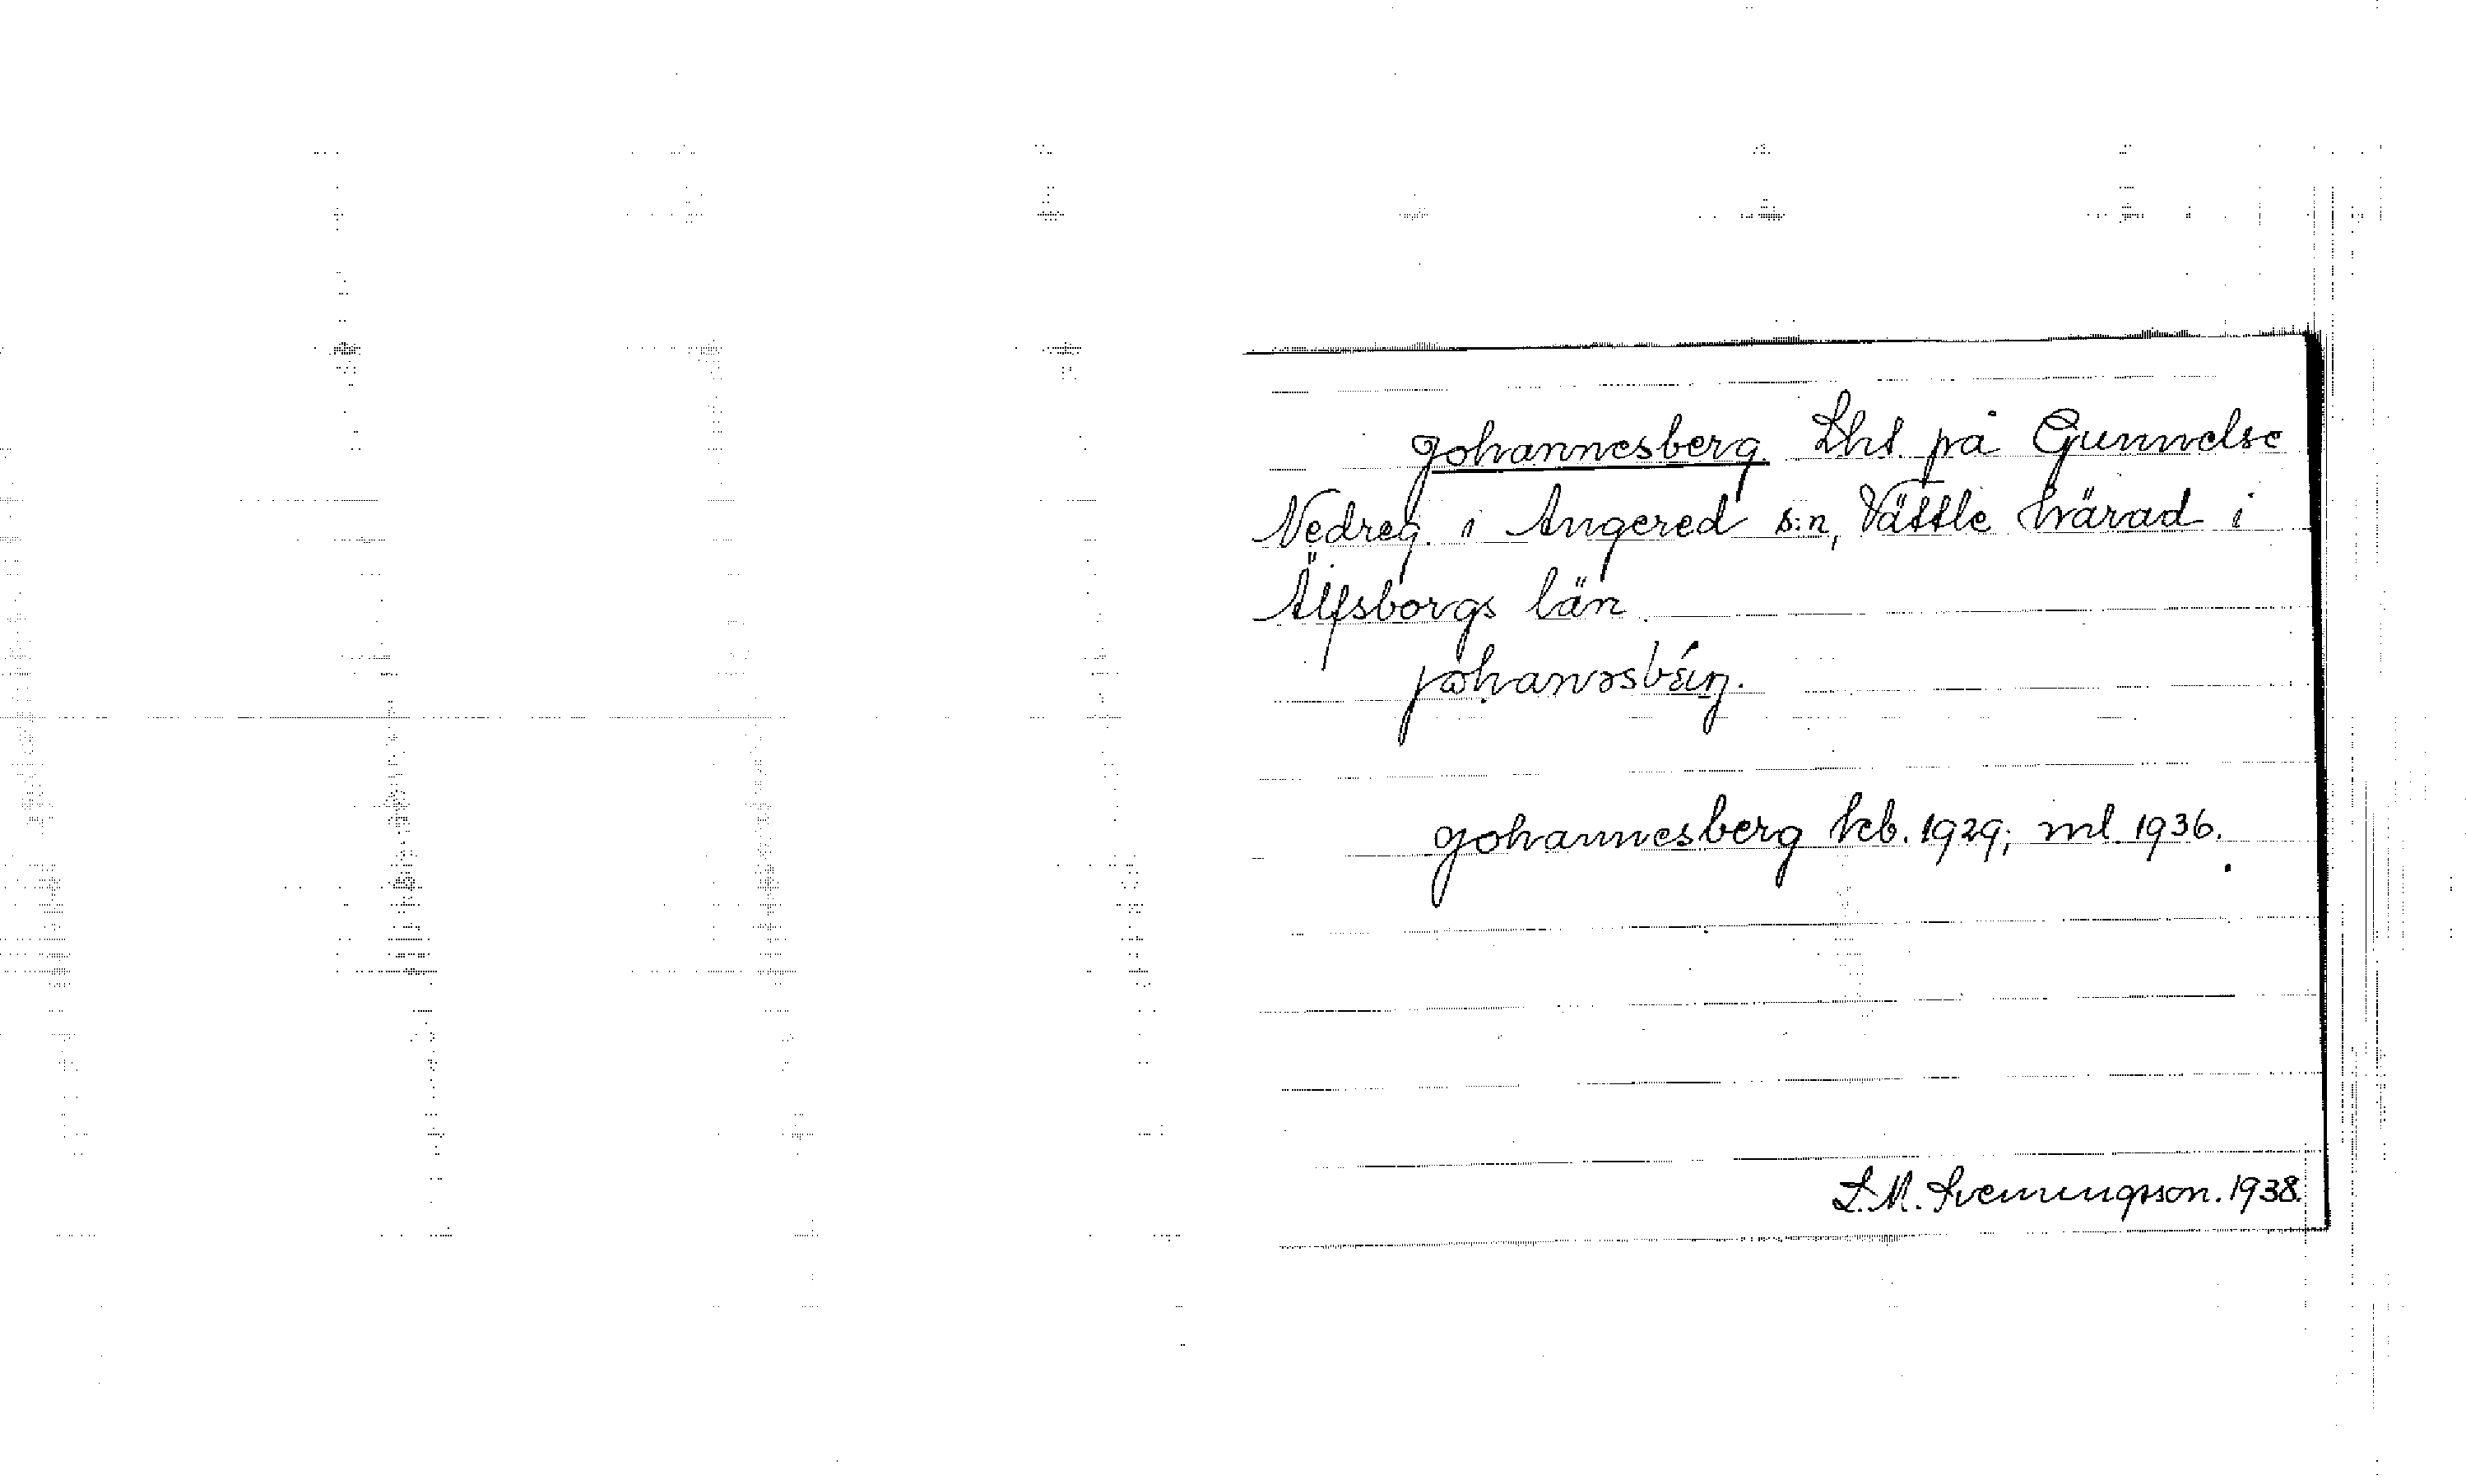 Johannesberg. Lht. på Gunnelse
Nedreg. i Angered s:n, Vättle härad i
Älfsborgs län.
Johannesberg kcb. 1929; ml. 1936.
L.M. Svenungsson. 1938.